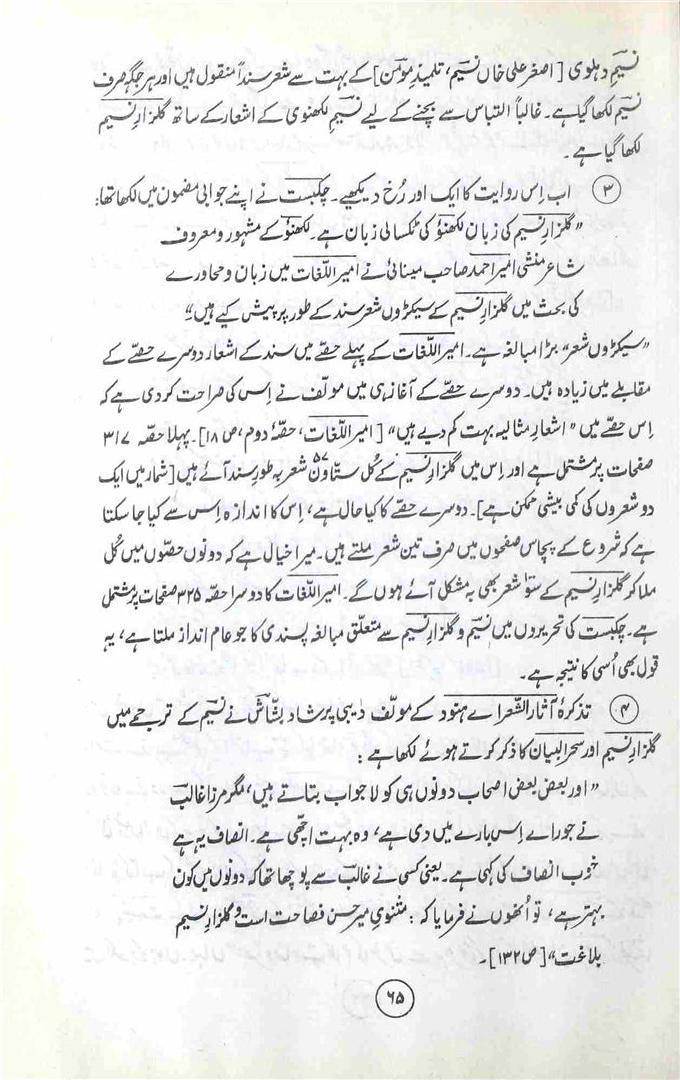 نسیمِ دہلوی [اصغر علی خاں نسیم، تلمیذِ مومن] کے بہت سے شعر سنداً منقول ہیں اور ہر جگہ صرف
نسیم لکھا گیا ہے۔ غالباً التباس سے بچنے کے لیے نسیمِ لکھنوی کے اشعار کے ساتھ گلزارِ نسیم
لکھا گیا ہے۔
③ اب اِس روایت کا ایک اور رُخ دیکھیے۔ چکبست نے اپنے جوابی مضمون میں لکھا تھا:
"گلزارِ نسیم کی زبان لکھنؤ کی ٹکسالی زبان ہے۔ لکھنؤ کے مشہور و معروف
شاعر منشی امیر احمد صاحب مینائی نے امیر اللّغات میں زبان و محاورے
کی بحث میں گلزارِ نسیم کے سیکڑوں شعر سند کے طور پر پیش کیے ہیں"
"سیکڑوں شعر" بڑا مبالغہ ہے۔ امیر اللّغات کے پہلے حصّے میں سند کے اشعار دوسرے حصّے کے
مقابلے میں زیادہ ہیں۔ دوسرے حصّے کے آغاز ہی میں مولّف نے اِس کی صراحت کر دی ہے کہ
اِس حصّے میں "اشعارِ مثالیہ بہت کم دیے ہیں" [امیر اللّغات، حصّۂ دوم، ص ۱۸]۔ پہلا حصّہ ۳۱۷
صفحات پر مشتمل ہے اور اِس میں گلزارِ نسیم کے کُل ستّاون ۵۷ شعر بہ طورِ سند آئے ہیں [شمار میں ایک
دو شعروں کی کمی بیشی ممکن ہے]۔ دوسرے حصّے کا کیا حال ہے، اِس کا اندازہ اِس سے کیا جا سکتا
ہے کہ شروع کے پچاس صفحوں میں صرف تین شعر ملتے ہیں۔ میرا خیال ہے کہ دونوں حصّوں میں کُل
ملا کر گلزارِ نسیم کے سو شعر بھی بہ مشکل آئے ہوں گے۔ امیر اللّغات کا دوسرا حصّہ ۳۲۵ صفحات پر مشتمل
ہے۔ چکبست کی تحریروں میں نسیم و گلزارِ نسیم سے متعلّق مبالغہ پسندی کا جو عام انداز ملتا ہے، یہ
قول بھی اُسی کا نتیجہ ہے۔
④ تذکرۂ آثار الشعراے ہنود کے مولّف دیبی پرشاد بشّاش نے نسیم کے ترجمے میں
گلزارِ نسیم اور سحر البیان کا ذکر کرتے ہوئے لکھا ہے:
"اور بعض بعض اصحاب دونوں ہی کو لاجواب بتاتے ہیں، مگر مرزا غالب
نے جو راے اِس بارے میں دی ہے، وہ بہت اچھی ہے۔ انصاف یہ ہے
خوب انصاف کی کہی ہے۔ یعنی کسی نے غالب سے پوچھا تھا کہ دونوں میں کون
بہتر ہے، تو اُنھوں نے فرمایا کہ: مثنویِ میر حسن فصاحت است و گلزارِ نسیم
بلاغت" [ص ۱۳۲]۔
۶۵